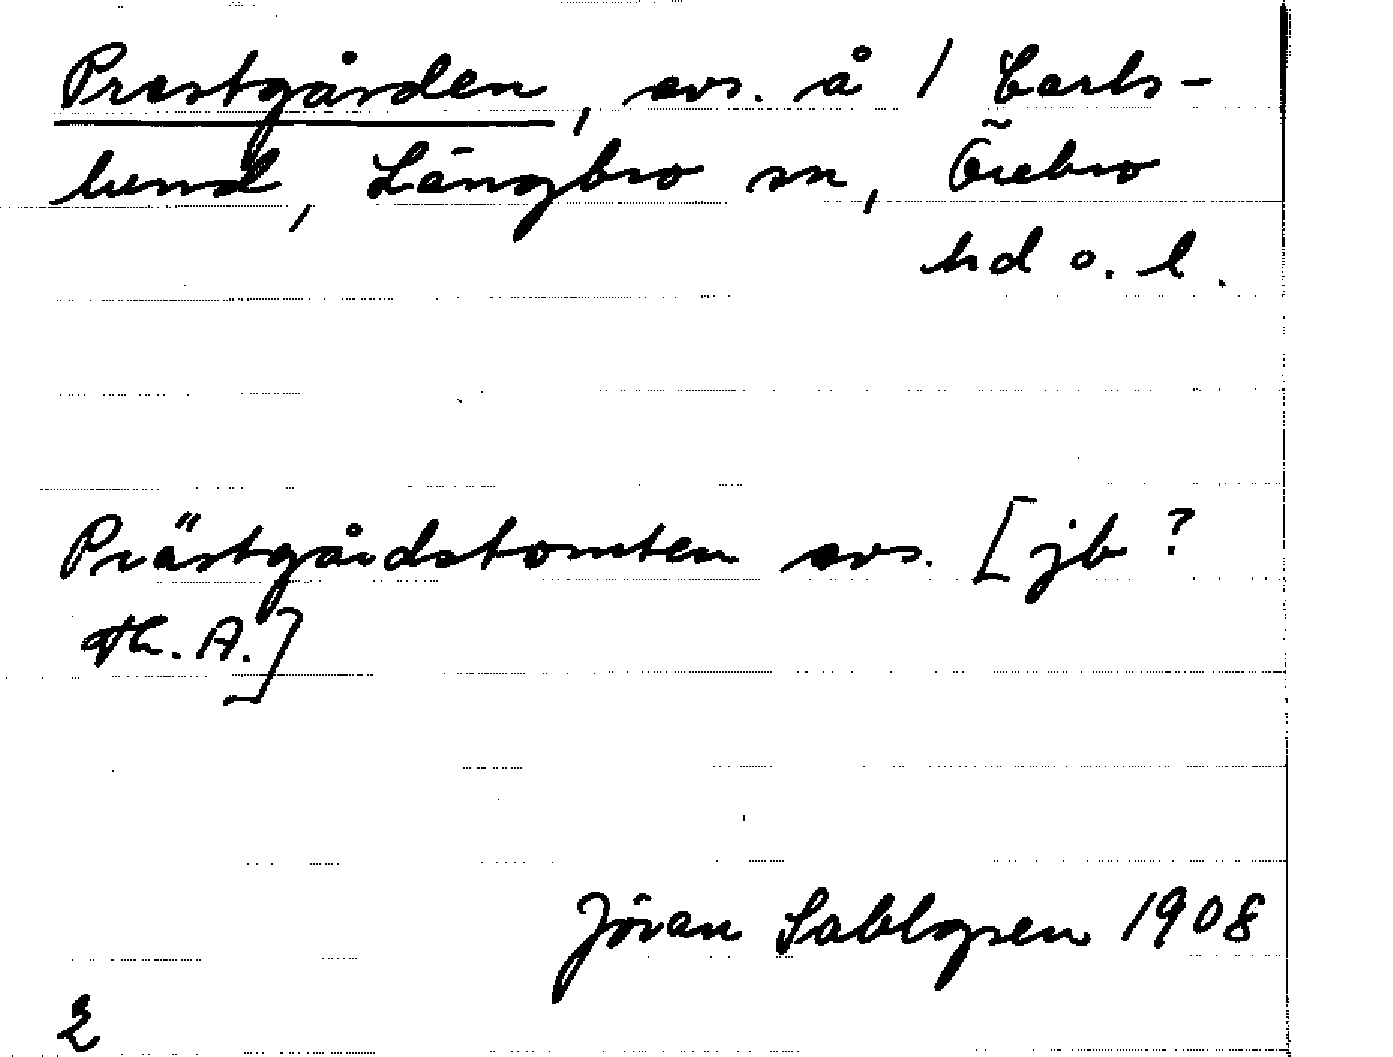 Prästgården, avs. å / Carls-
lund, Längbro sn, Örebro
hd o. l.
Prästgårdstomten avs. [jb ?
Th. A.]
Jöran Sahlgren 1908
2